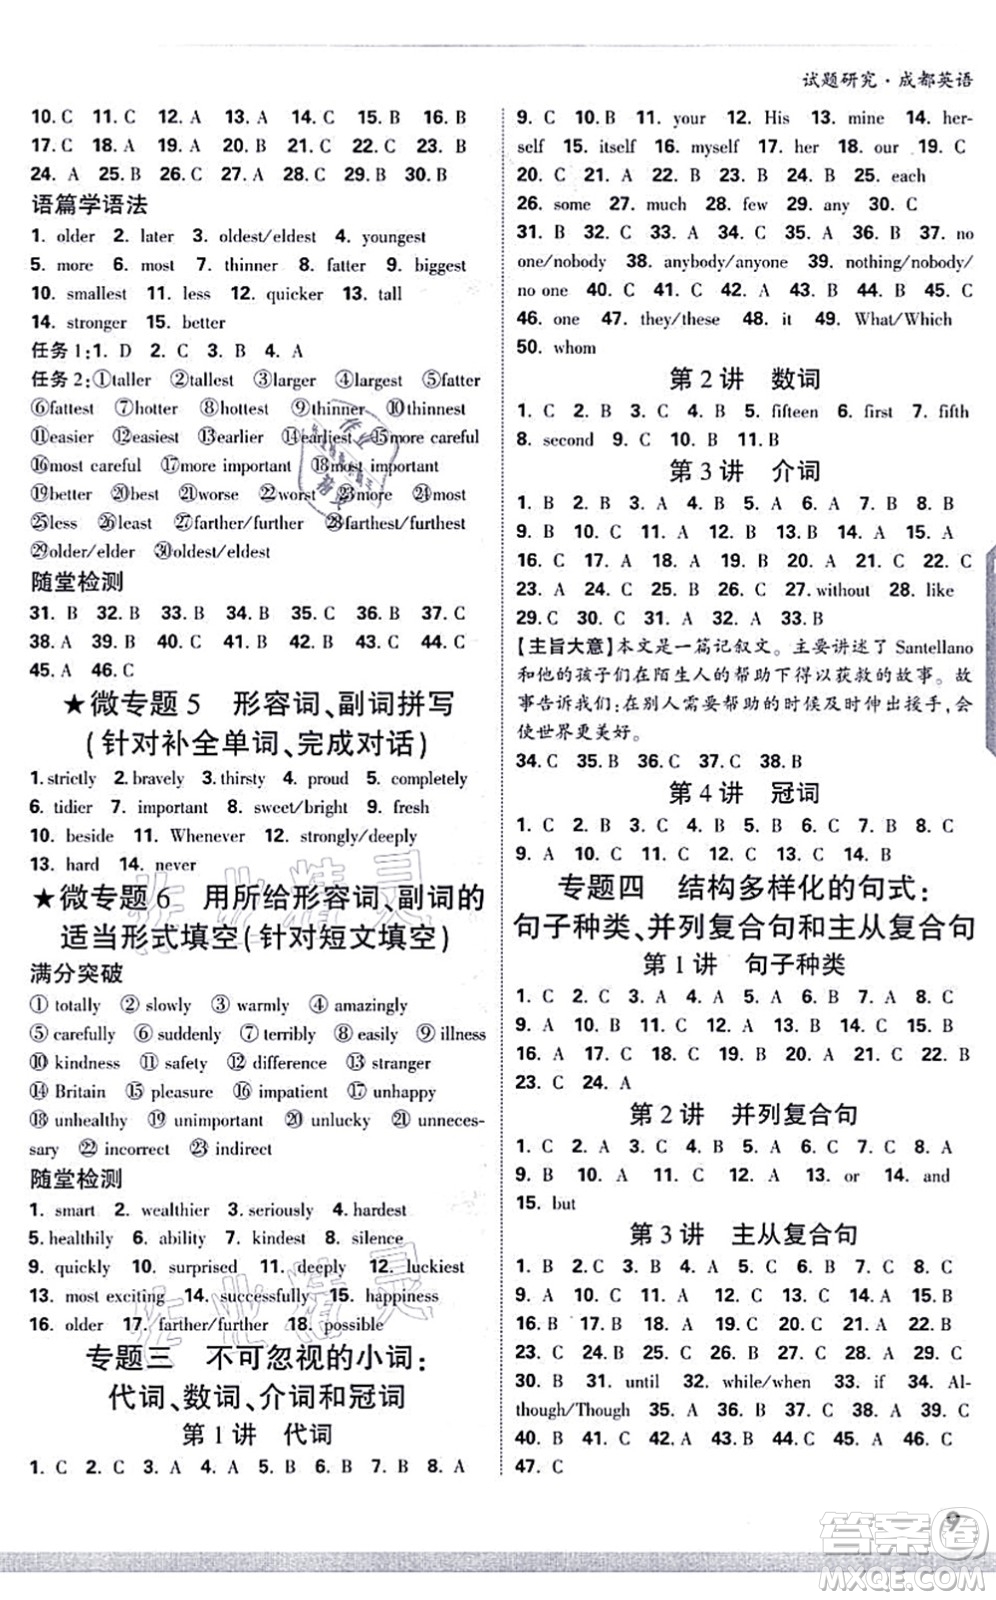 试题研究·成都英语
10. C 11. C 12. A 13. A 14. C 15. B 16. B
17. C 18. A 19. C 20. B 21. B 22. C 23. B
24. A 25. B 26. C 27. A 28. C 29. B 30. B
语篇学语法
1. older 2. later 3. oldest/eldest 4. youngest
5. more 6. most 7. thinner 8. fatter 9. biggest
10. smallest 11. less 12. quicker 13. tall
14. stronger 15. better
任务1:1. D 2. C 3. B 4. A
任务2:①taller ②tallest ③larger ④largest ⑤fatter
⑥fattest ⑦hotter ⑧hottest ⑨thinner ⑩thinnest
⑪easier ⑫easiest ⑬earlier ⑭earliest ⑮more careful
⑯most careful ⑰more important ⑱most important
⑲better ⑳best ㉑worse ㉒worst ㉓more ㉔most
㉕less ㉖least ㉗farther/further ㉘farthest/furthest
㉙older/elder ㉚oldest/eldest
随堂检测
31. B 32. B 33. B 34. B 35. C 36. B 37. C
38. A 39. B 40. C 41. B 42. C 43. C 44. C
45. A 46. C
★微专题5 形容词、副词拼写
(针对补全单词、完成对话)
1. strictly 2. bravely 3. thirsty 4. proud 5. completely
6. tidier 7. important 8. sweet/bright 9. fresh
10. beside 11. Whenever 12. strongly/deeply
13. hard 14. never
★微专题6 用所给形容词、副词的
适当形式填空(针对短文填空)
满分突破
① totally ② slowly ③ warmly ④ amazingly
⑤ carefully ⑥ suddenly ⑦ terribly ⑧ easily ⑨ illness
⑩ kindness ⑪ safety ⑫ difference ⑬ stranger
⑭ Britain ⑮ pleasure ⑯ impatient ⑰ unhappy
⑱ unhealthy ⑲ unimportant ⑳ unlucky ㉑ unneces-
sary ㉒ incorrect ㉓ indirect
随堂检测
1. smart 2. wealthier 3. seriously 4. hardest
5. healthily 6. ability 7. kindest 8. silence
9. quickly 10. surprised 11. deeply 12. luckiest
13. most exciting 14. successfully 15. happiness
16. older 17. farther/further 18. possible
专题三 不可忽视的小词:
代词、数词、介词和冠词
第1讲 代词
1. C 2. C 3. A 4. A 5. C 6. A 7. B 8. A
9. C 10. B 11. your 12. His 13. mine 14. her-
self 15. itself 16. myself 17. her 18. our 19. C
20. B 21. C 22. B 23. C 24. A 25. each
26. some 27. much 28. few 29. any 30. C
31. B 32. C 33. C 34. B 35. A 36. A 37. no
one/nobody 38. anybody/anyone 39. nothing/nobody/
no one 40. C 41. C 42. A 43. B 44. A 45. C
46. one 47. they/these 48. it 49. What/Which
50. whom
第2讲 数词
1. C 2. B 3. C 4. B 5. fifteen 6. first 7. fifth
8. second 9. C 10. B 11. B
第3讲 介词
1. B 2. B 3. A 4. B 5. A 6. B 7. B 8. B
9. B 10. C 11. A 12. A 13. B 14. B 15. A
16. C 17. A 18. C 19. B 20. A 21. C 22. C
23. A 24. A 25. B 26. C 27. without 28. like
29. C 30. C 31. A 32. C 33. B
【主旨大意】本文是一篇记叙文。主要讲述了 Santellano
和他的孩子们在陌生人的帮助下得以获救的故事。故
事告诉我们:在别人需要帮助的时候及时伸出援手,会
使世界更美好。
34. C 35. B 36. C 37. C 38. B
第4讲 冠词
1. C 2. B 3. C 4. B 5. B 6. A 7. C 8. C
9. A 10. B 11. C 12. C 13. B 14. C 15. B
专题四 结构多样化的句式:
句子种类、并列复合句和主从复合句
第1讲 句子种类
1. C 2. C 3. A 4. A 5. C 6. A 7. A 8. C
9. A 10. B 11. C 12. B 13. B 14. C 15. C
16. A 17. B 18. C 19. B 20. A 21. C 22. B
23. C 24. A
第2讲 并列复合句
1. C 2. A 3. C 4. B 5. A 6. B 7. C 8. A
9. B 10. A 11. C 12. A 13. or 14. and
15. but
第3讲 主从复合句
1. B 2. C 3. B 4. A 5. C 6. B 7. C 8. C
9. B 10. C 11. C 12. A 13. C 14. B 15. B
16. B 17. C 18. A 19. B 20. C 21. B 22. C
23. C 24. C 25. B 26. A 27. B 28. A 29. C
30. B 31. until 32. while/when 33. if 34. Al-
though/Though 35. A 36. A 37. C 38. A 39. C
40. B 41. B 42. C 43. B 44. A 45. A 46. C
47. C
9
答案圈
MXQE.COM
作业精灵
作业精灵